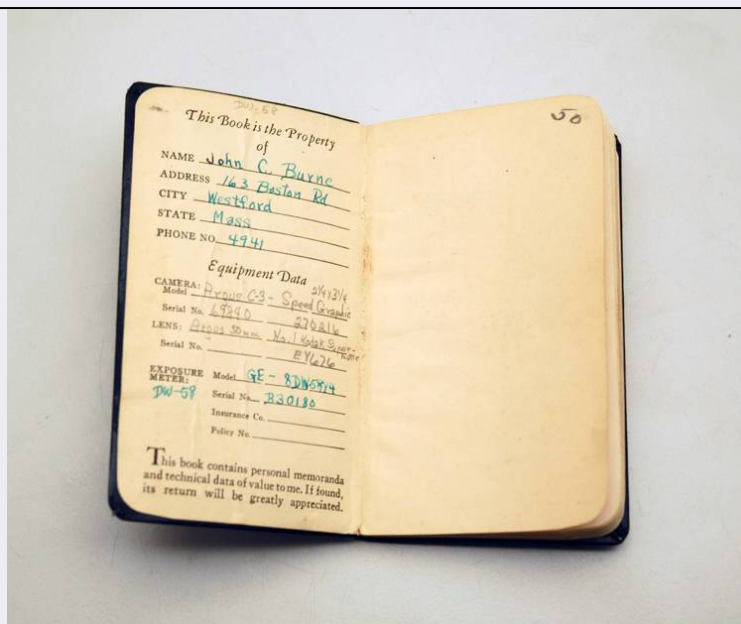 DW-58
This Book is the Property
of
NAME John C. Burne
ADDRESS 163 Boston Rd
CITY Westford
STATE Mass
PHONE NO. 4941
Equipment Data
2¼x3¼
CAMERA:
Model Argus C-3 - Speed Graphic
Serial No. 69240 270216
LENS: Argus 50mm No. 1 Kodak
Serial No. EY676
EXPOSURE
METER: Model GE - 8DW58Y4
DW-58 Serial No. B30180
Insurance Co.
Policy No.
This book contains personal memoranda
and technical data of value to me. If found,
its return will be greatly appreciated.
50